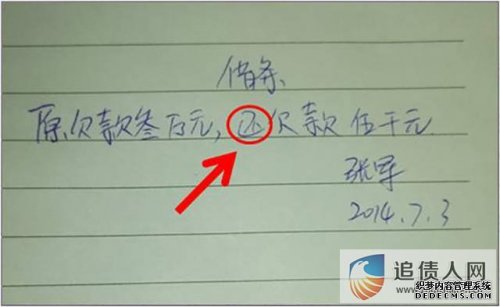 借条
原欠款叁万元，还欠款伍千元
张军
2014.7.3
追债人网
织梦内容管理系统
DEDECMS.COM